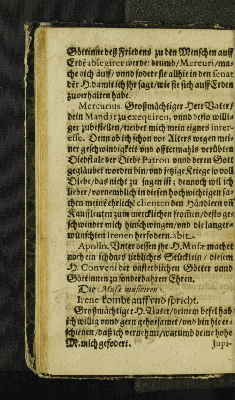 Göttinne deß Friedens zu den Menschen auff
Erdē ablegiret werde: drumb/ Mercuri/ ma-
che dich auff/ vnnd fodere sie allhie in den senat
der H. damit ich ihr sage/ wie sie sich auff Erden
zuverhalten habe.
Mercurius. Großmächtiger Herr Vater/
dein Mandat zu exequiren, vnnd desto willi-
ger zubestellen/ treibet mich mein eignes inter-
esse. Denn ob ich schon vor Alters wegen mei-
ner geschwindigkeit vnd offtermahls verübten
Diebstale der Diebe Patron vnnd deren Gott
geglaubet worden bin/ vnd jetzige Kriege so voll
Diebe/ das nicht zu sagen ist: dennoch wil ich
lieber/ vornemblich in diesen hochwichtigen sa-
chen meine ehrliche clienten den Händlern vñ
Kauffleuten zum mercklichen fromen/ desto ge-
schwinder mich hinschwingen/ vnd die langer-
wünschten Irenen herfodern. abit.
Apollo. Unter dessen ihr H. Musæ machet
noch ein schön vñ liebliches Stücklein/ diesem
H. Convent der vnsterblichen Götter vnnd
Göttinnen zu sonderbahren Ehren.
Die Musæ musiciren.
Irene kombt auff vnd spricht.
Großmächtiger H. Vater/ deinem befel hab
ich willig vnnd gern gehorsamet/ vnd bin hie er-
schienen/ daß ich vernehm/ warumb deine hohe
M. mich gefodert.
Jupi-